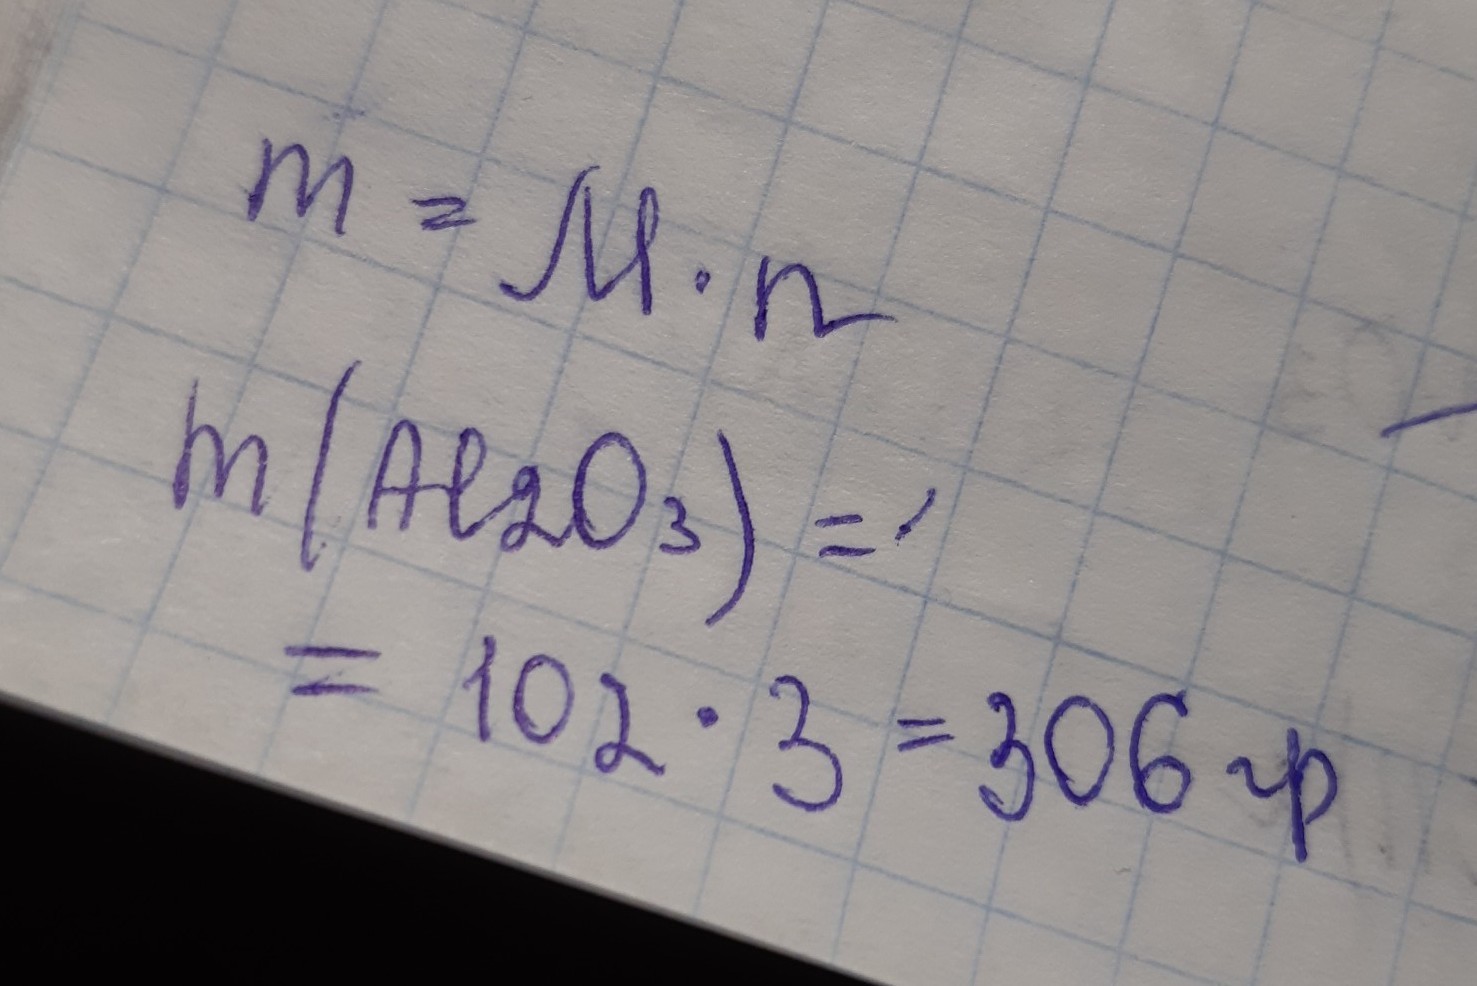 m = M · n
m (Al2O3) =
= 102 · 3 = 306 гр